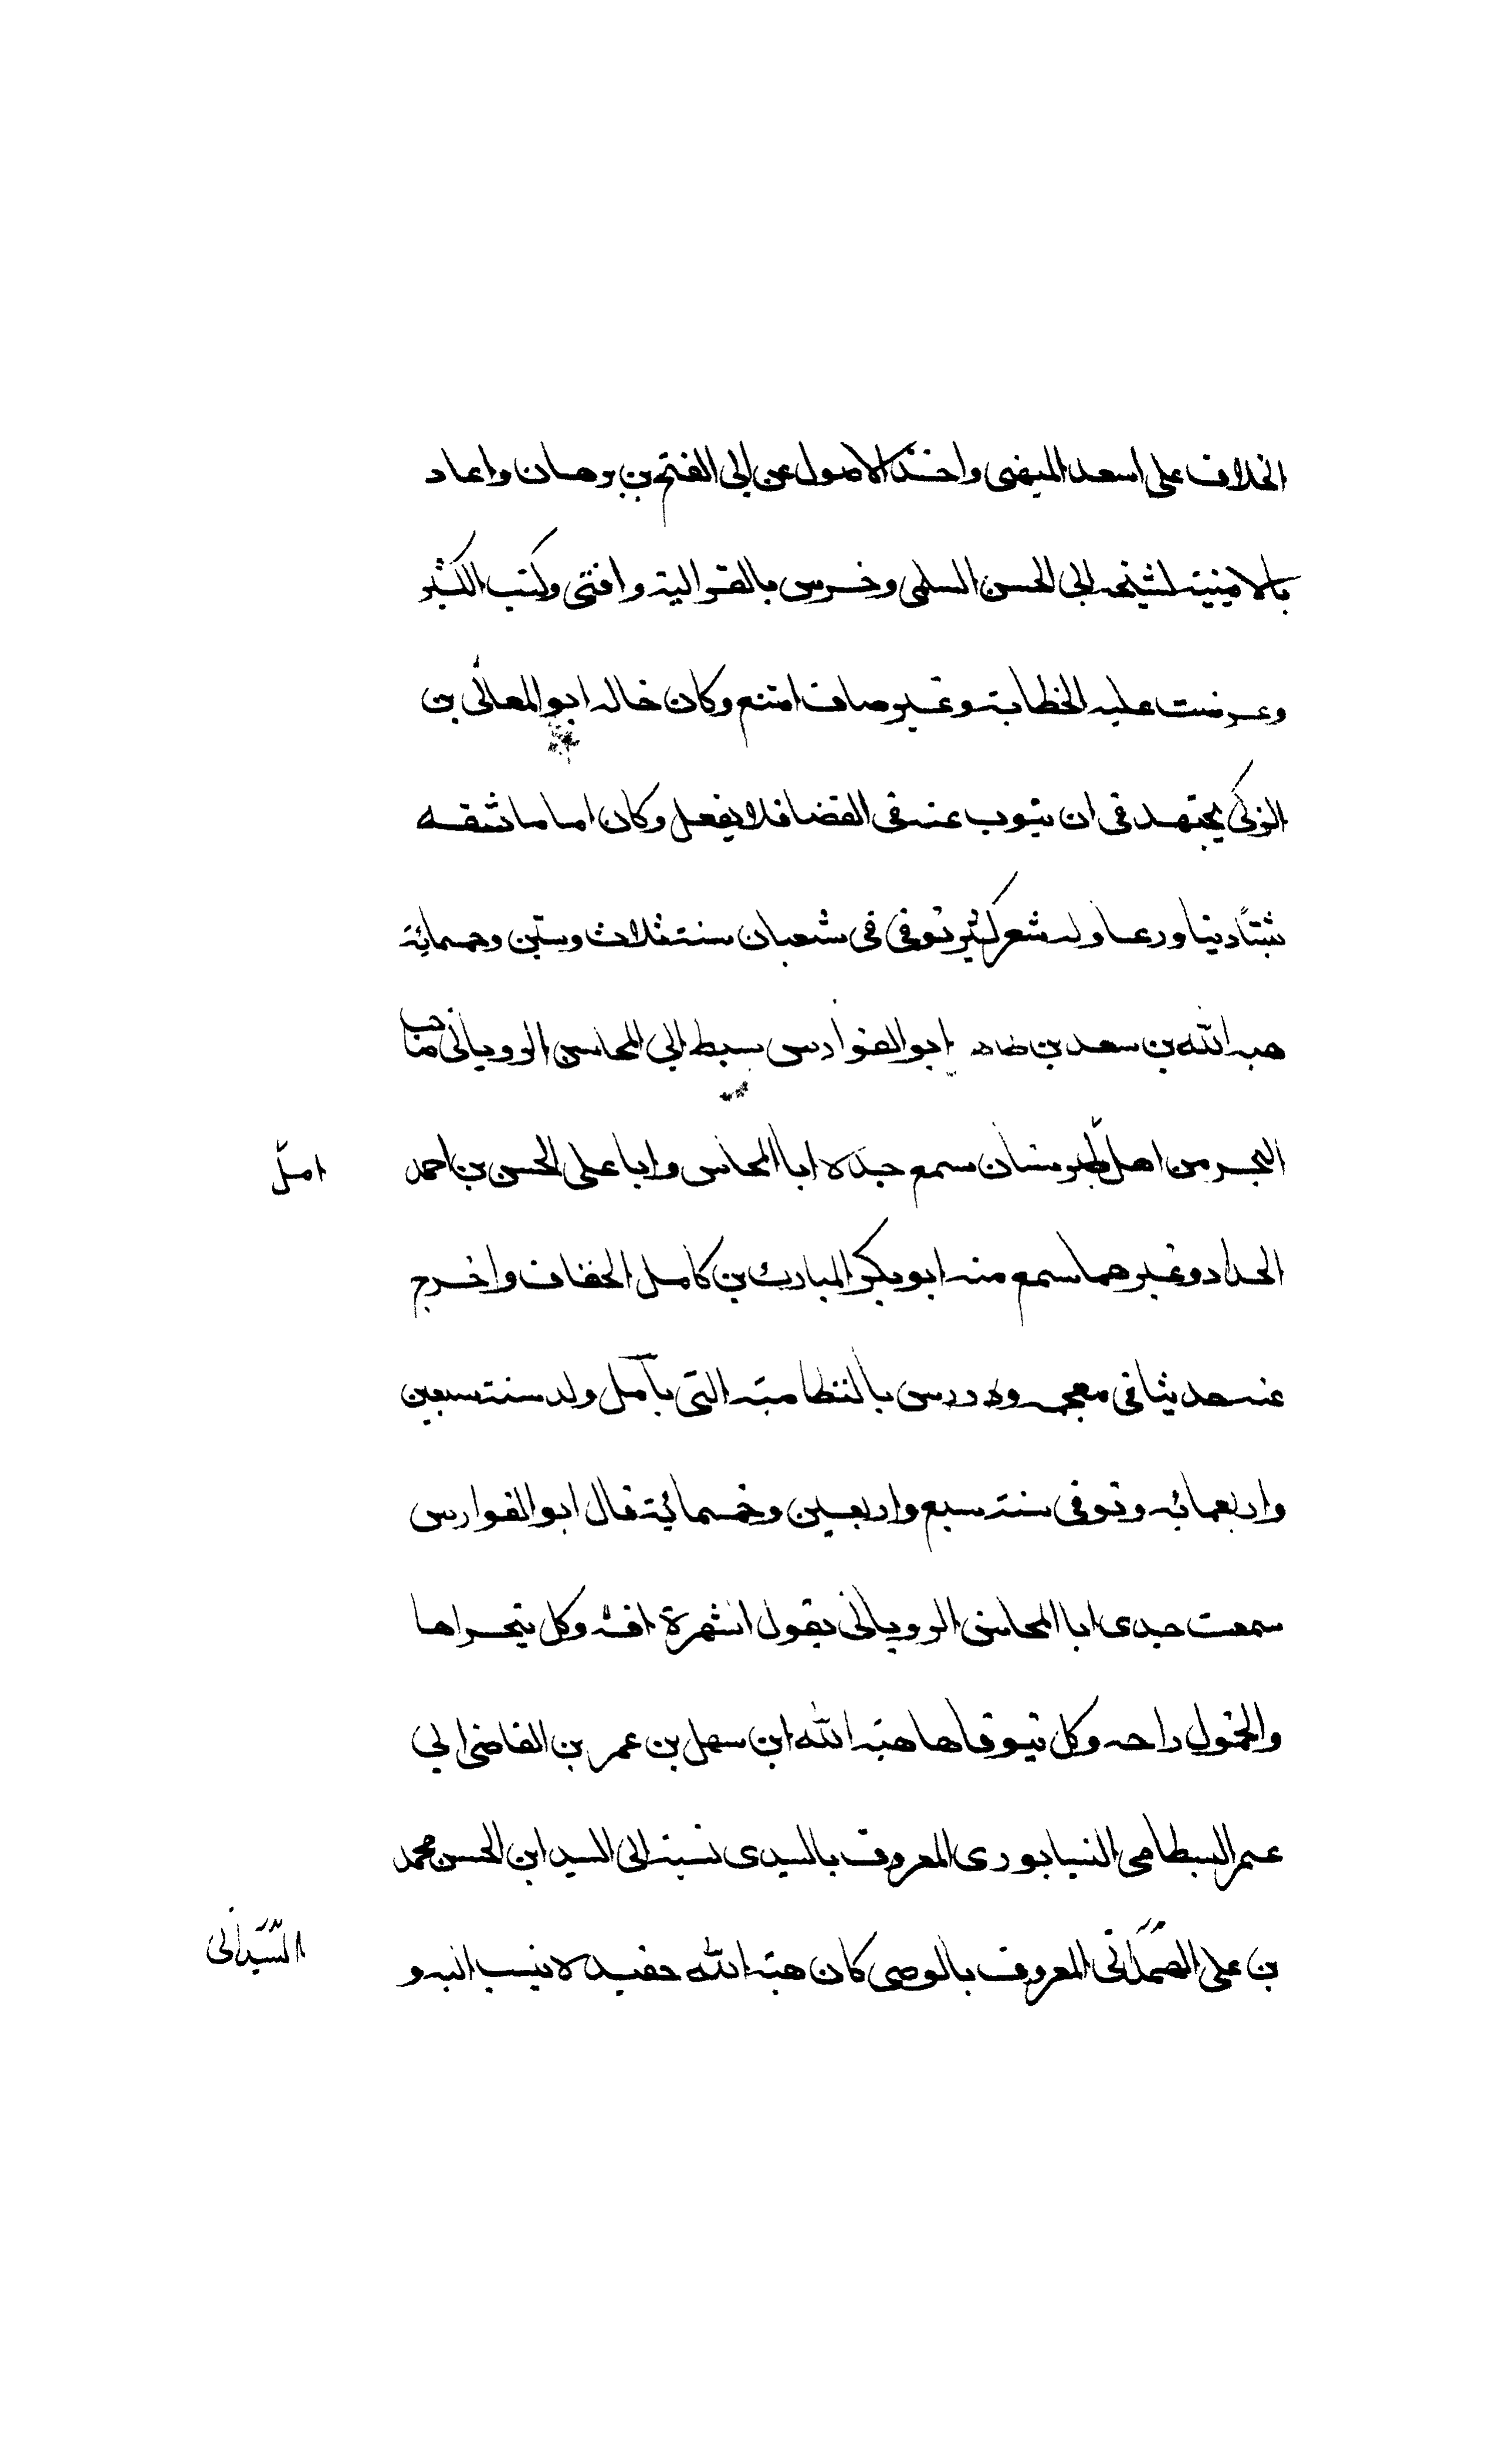 الخلاف على اسعد الميهنى واخذ الاصول عن ابى الفتح بن برهان واعاد
بالامينية لشيخه ابى الحسن السلمى ودرس بالغزالية وافتى وكتب الكثير
وعرضت عليه الخطابة وغير صاف امتنع وكان خاله ابو المعالى بن
الزكى يجتهد فى ان ينوب عنه فى القضا فلا يفعل وكان اماما ثقه
ثبتًا دينا ورعا وله شعر كثير توفى فى شعبان سنة ثلاث وستين وخمسمائة
هبه الله بن سعد بن طاهر ابو الفوارس سبط ابى المحاسن الرويانى صاحب
البحر من اهل طبرستان سمع جده ابا المحاسن وابا على الحسن بن احمد
امل
الحداد وغيرهما سمع منه ابو بكر المبارك بن كامل الخفاف واخرج
عنه حديثا فى معجمه ودرس بالنظامية التى بآمل ولد سنة سبعين
واربعمائه وتوفى سنة سبع واربعين وخمسمائية قال ابو الفوارس
سمعت جدى ابا المحاسن الرويانى يقول الشهرة افه وكل يتحراها
والخمول راحه وكل يتوقاها هبة الله ابن سهل بن عمر بن القاضى ابى
عمر البسطامى النيسابورى المعروف بالسيدى نسبة الى السيد ابن الحسن محمد
بن على الهمدانى المعروف بالوصى كان هبة الله حفيده لا ينسب اليه و